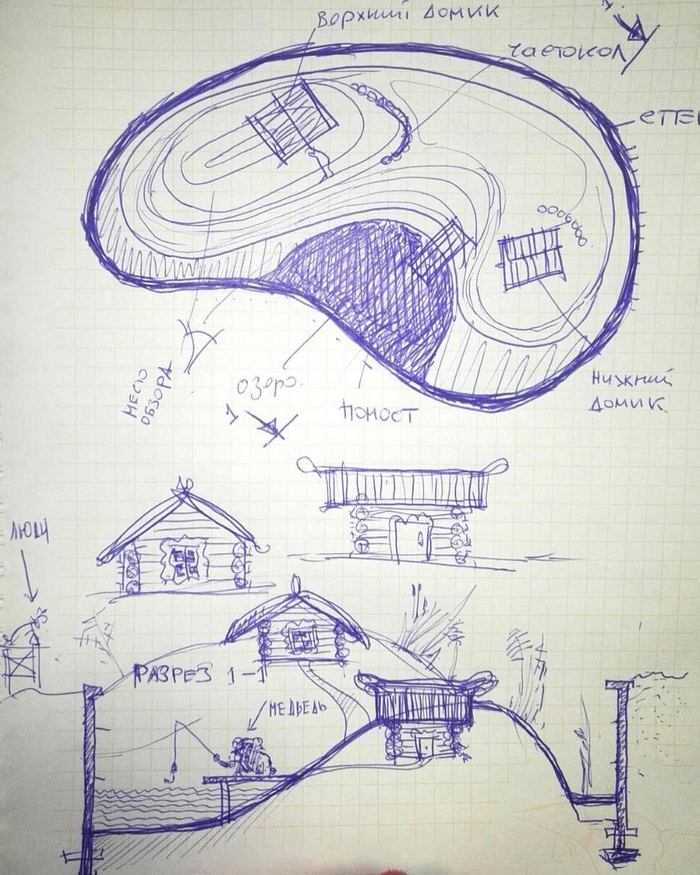 ВЕРХНИЙ ДОМИК
1.
ЧАСТОКОЛ
МЕСТО
ОБЗОРА
ОЗЕРО.
1
ПОМОСТ
НИЖНИЙ
ДОМИК.
ЛЮДИ
РАЗРЕЗ 1-1
МЕДВЕДЬ